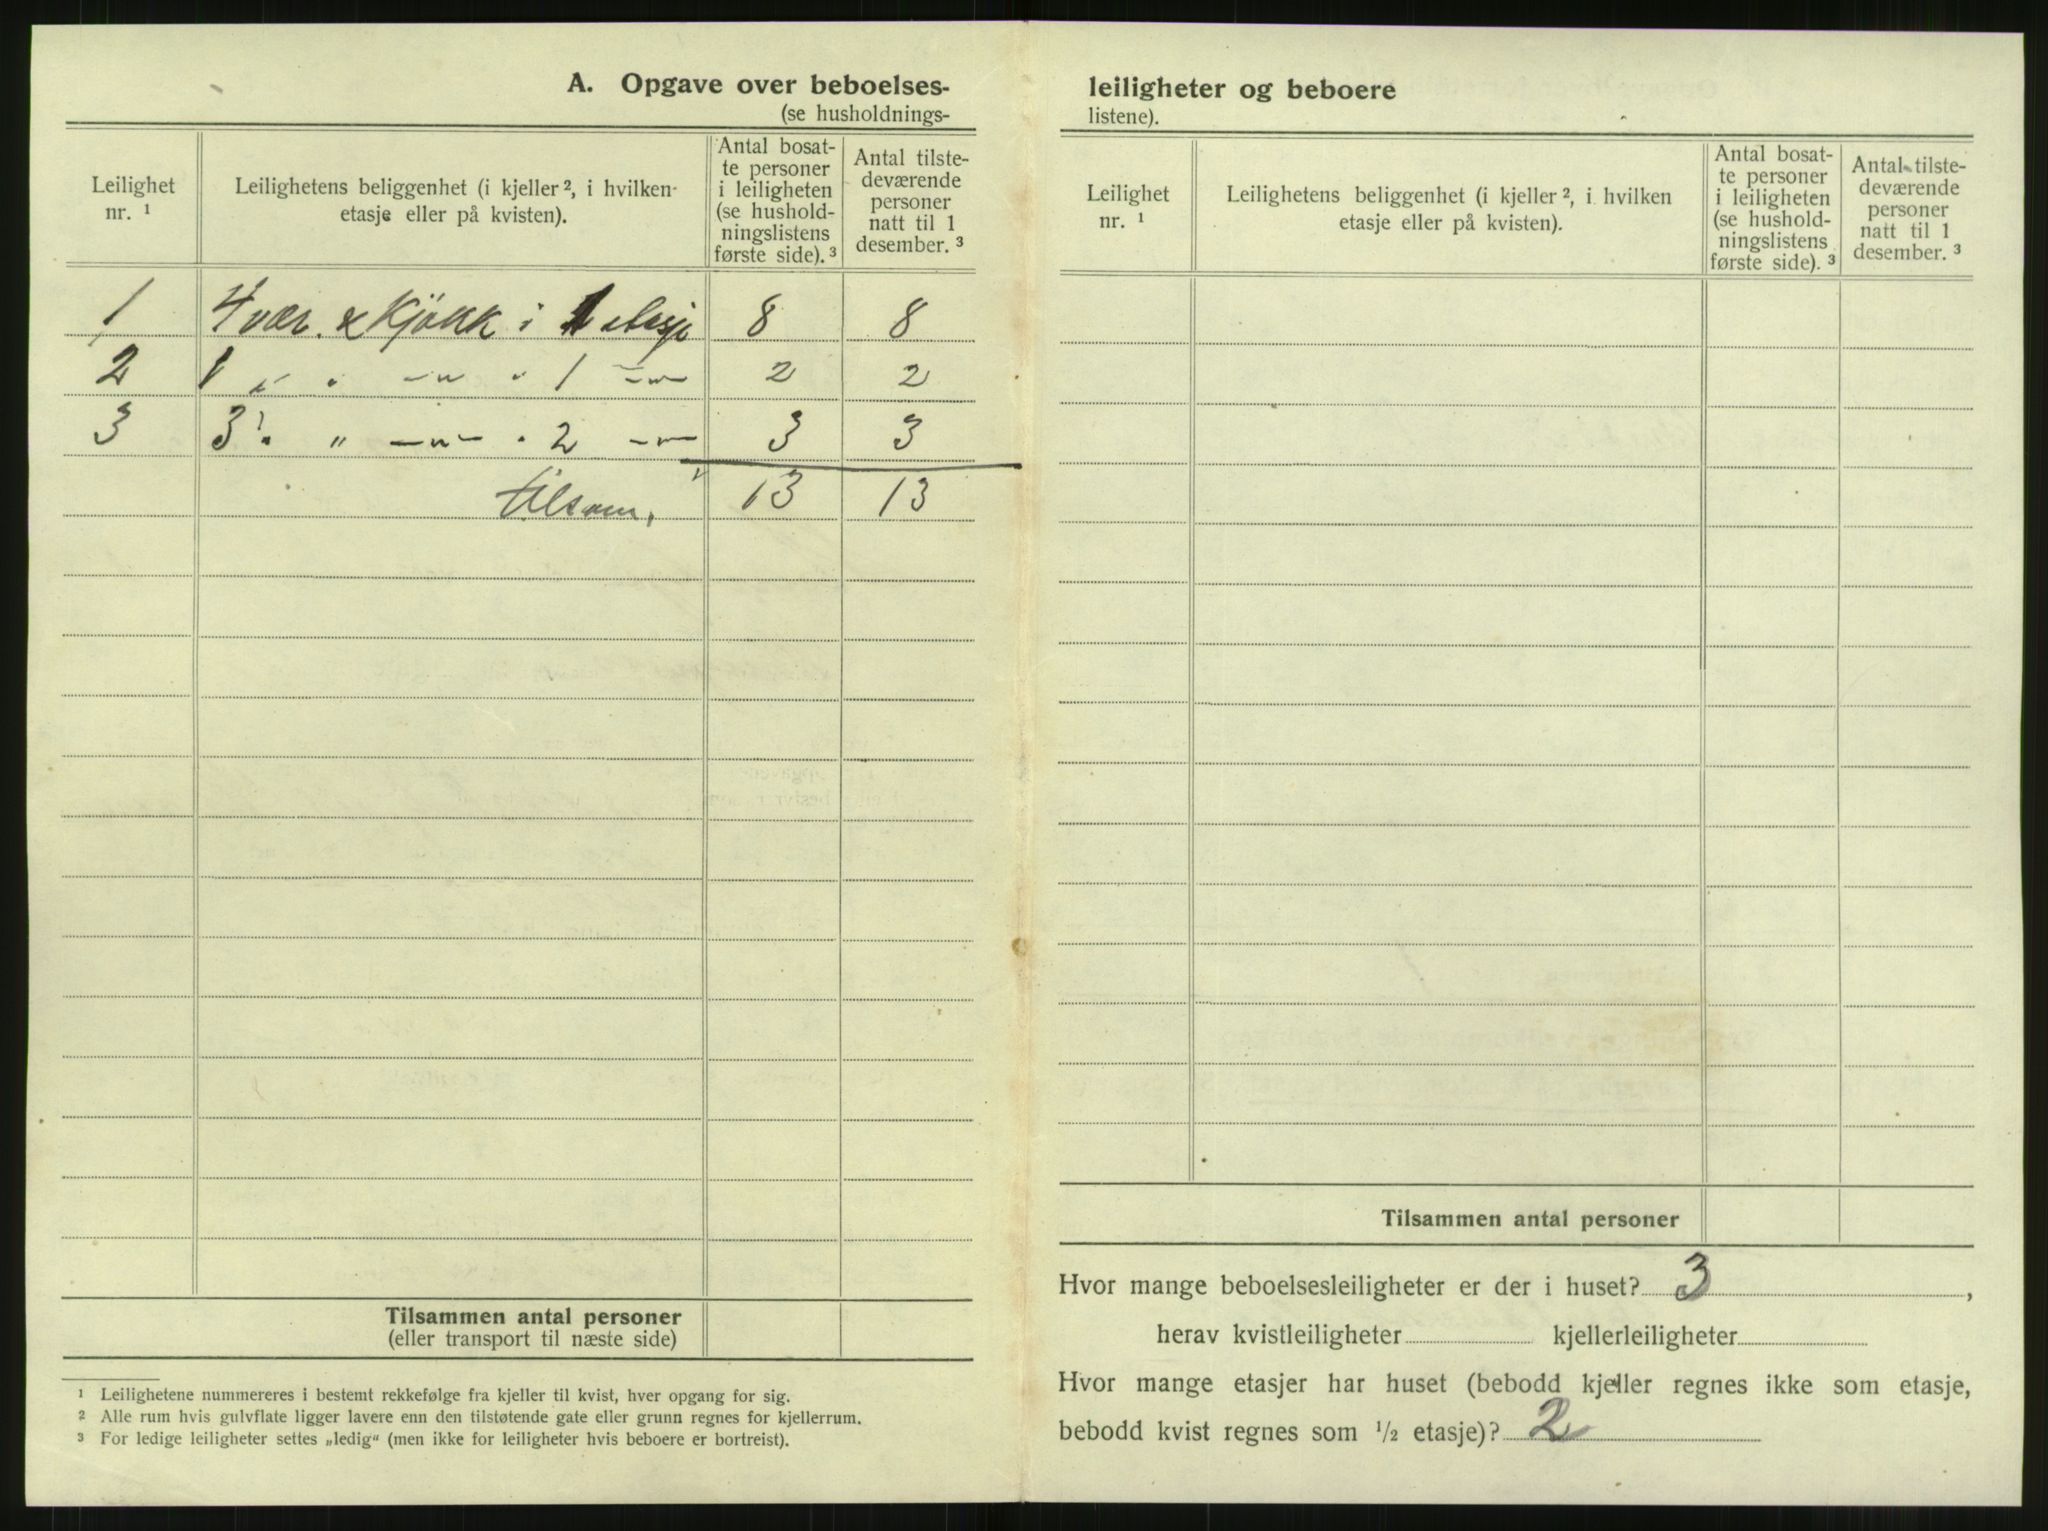 A. Opgave over beboelses-
(se husholdnings-
Leilighet nr. ¹
Leilighetens beliggenhet (i kjeller ², i hvilken etasje eller på kvisten).
Antal bosat-
te personer
i leiligheten
(se hushold-
ningslistens
første side). ³
Antal tilste-
deværende
personer
natt til 1
desember. ³
1 4 vær. & Kjökk i 1 etasje 8 8
2 1 " " —"— " 1 —"— 2 2
3 3 " " —"— " 2 —"— 3 3
tilsam. 13 13
Tilsammen antal personer
(eller transport til næste side)
¹ Leilighetene nummereres i bestemt rekkefølge fra kjeller til kvist, hver opgang for sig.
² Alle rum hvis gulvflate ligger lavere enn den tilstøtende gate eller grunn regnes for kjellerrum.
³ For ledige leiligheter settes „ledig“ (men ikke for leiligheter hvis beboere er bortreist).
leiligheter og beboere
listene).
Leilighet
nr. ¹
Leilighetens beliggenhet (i kjeller ², i hvilken
etasje eller på kvisten).
Antal bosat-
te personer
i leiligheten
(se hushold-
ningslistens
første side). ³
Antal tilste-
deværende
personer
natt til 1
desember. ³
Tilsammen antal personer
Hvor mange beboelsesleiligheter er der i huset? 3 ,
herav kvistleiligheter kjellerleiligheter
Hvor mange etasjer har huset (bebodd kjeller regnes ikke som etasje,
bebodd kvist regnes som ½ etasje)? 2